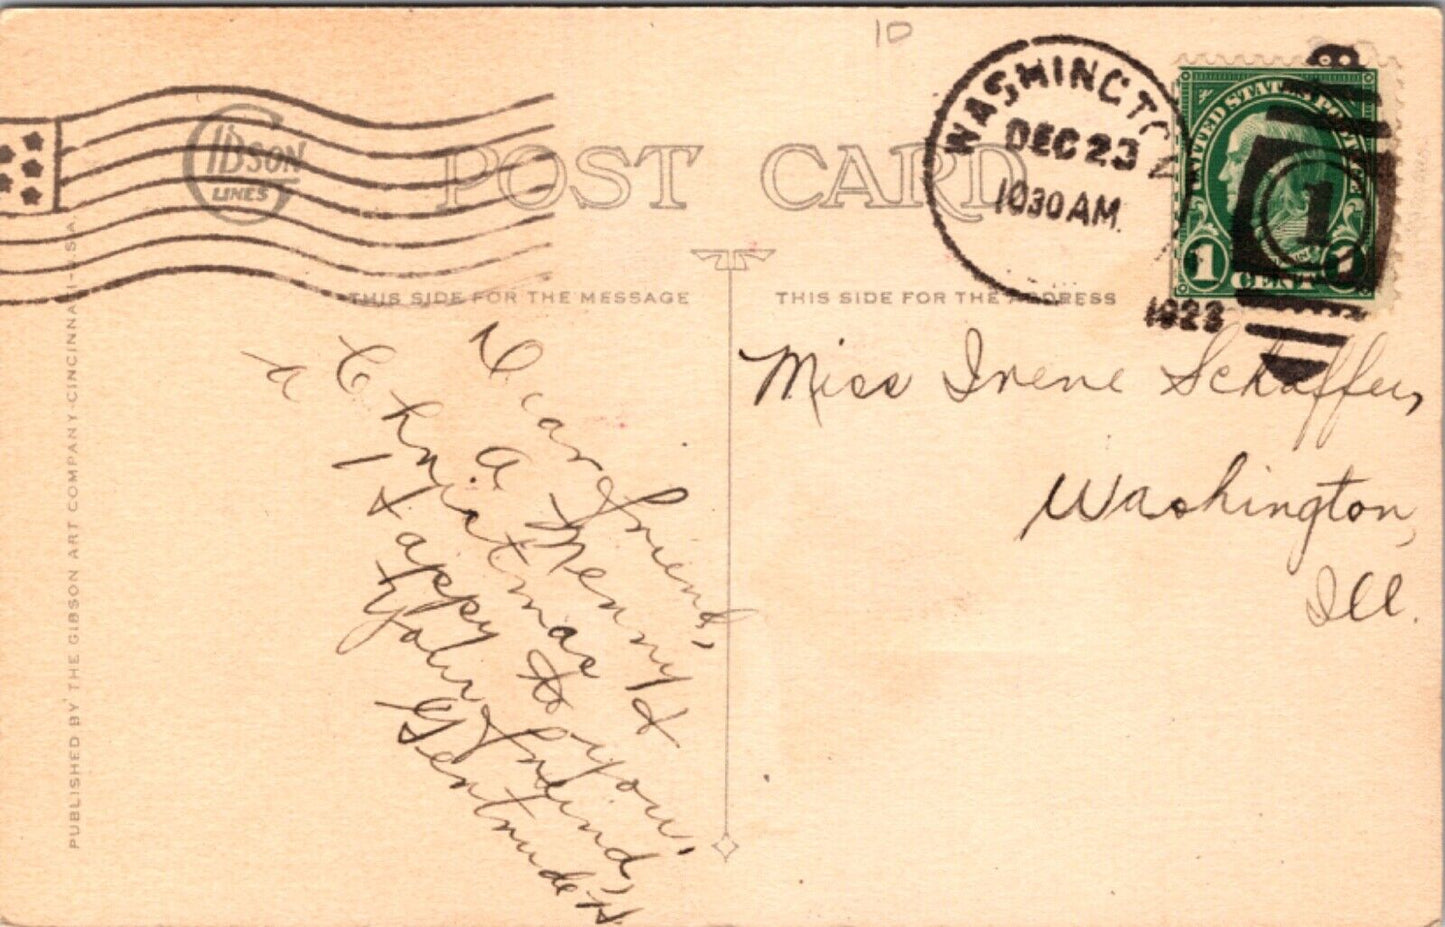 10
GIBSON
LINES
POST CARD
WASHINGTO
DEC 23
10 30 AM.
1923
UNITED STATES POSTAGE
1 CENT 1
1
THIS SIDE FOR THE MESSAGE
THIS SIDE FOR THE ADDRESS
Dear Friend,
A Merry
Christmas &
A Happy to you.
Your Friend,
Gertrude H.
Miss Irene Schaffer,
Washington,
Ill.
PUBLISHED BY THE GIBSON ART COMPANY-CINCINNATI-U.S.A.